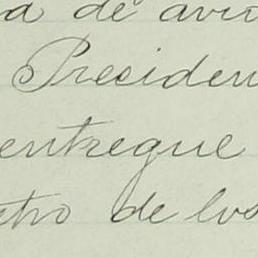 a de avi
Presiden
entregue
etro de los